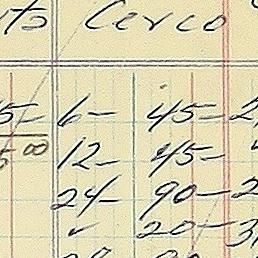 Cerco
5- 6- 45- 2
5 00 12- 45-
24- 90- 2
✓ 20- 3